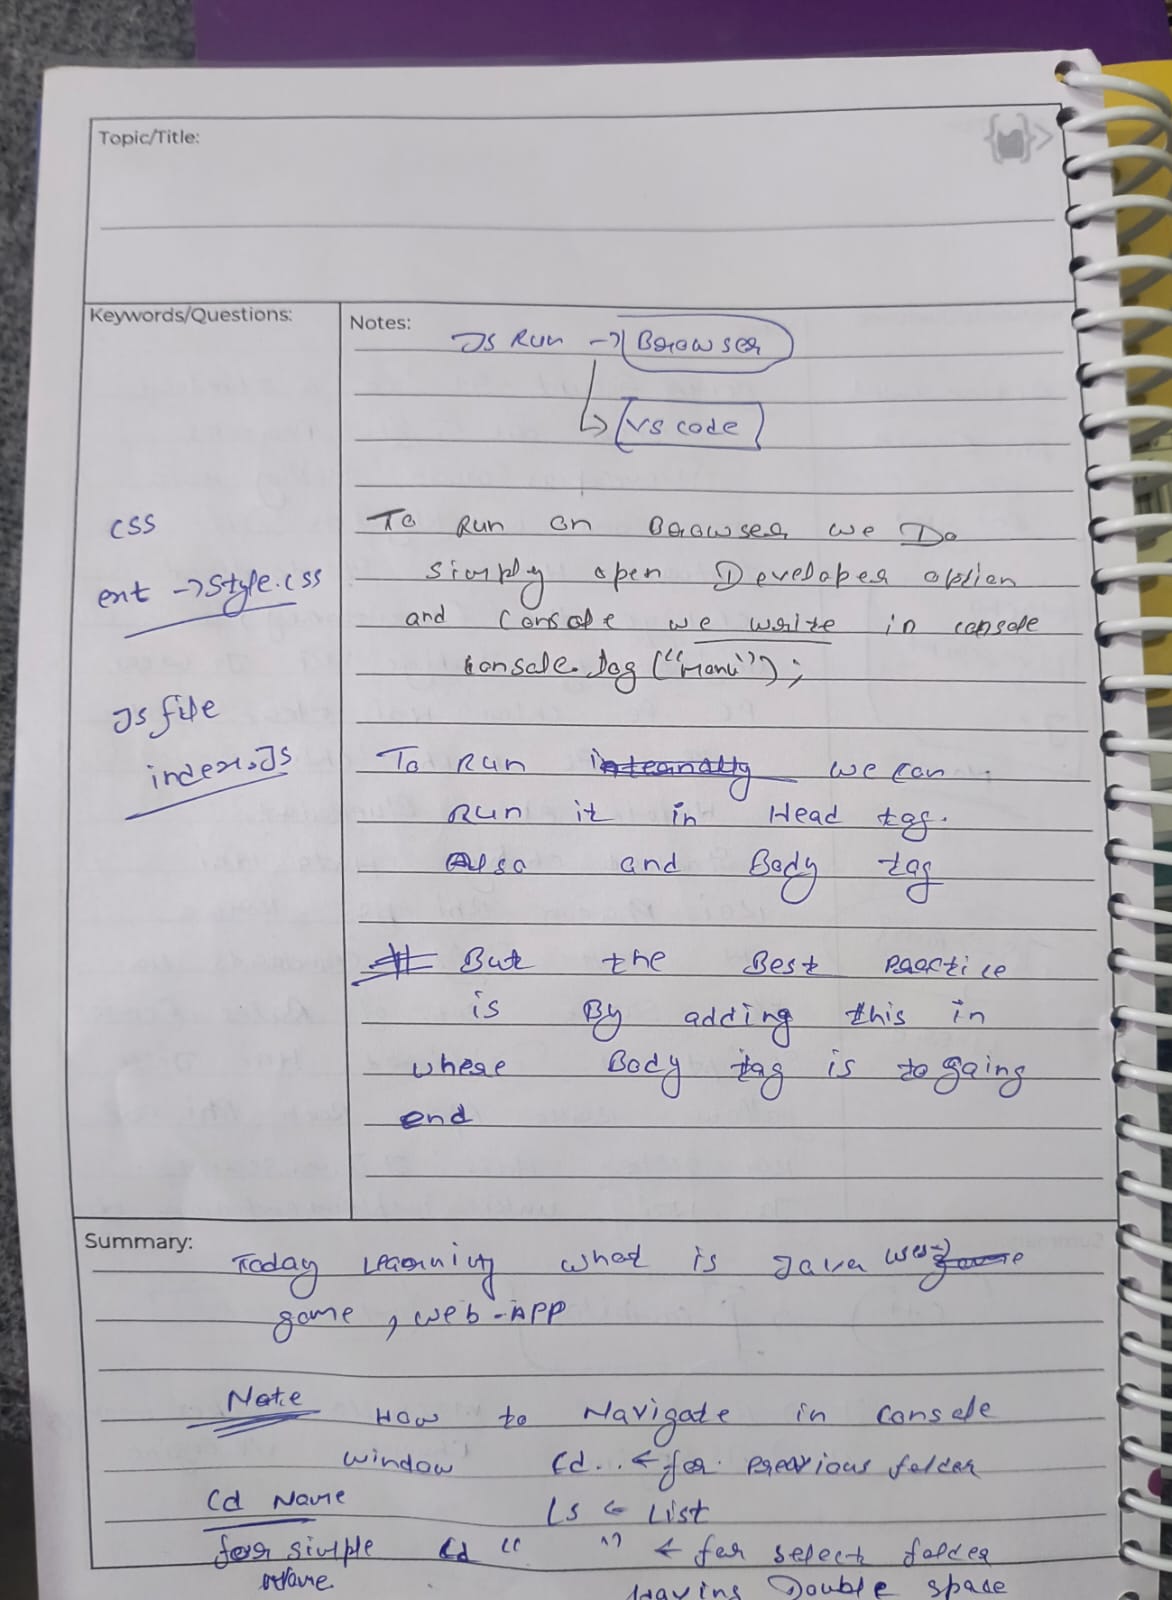 Topic/Title:
Keywords/Questions:
Notes:
Js Run → Browser
↳ VS code
CSS
ext → Style.css
Js file
index.Js
To Run on Browser we Do
simply open Developer option
and Console we write in console
console.log("Manu");
To Run internally we can
Run it in Head tag.
Also and Body tag
# But the Best Practice
is By adding this in
where Body tag is to going
end
Summary:
Today Learning what is Java
game, web-APP
Note
How to Navigate in console
window Cd.. ← for previous folder
Cd Name Ls ← List
for simple Cd " " ← for select folder
Name having Double space